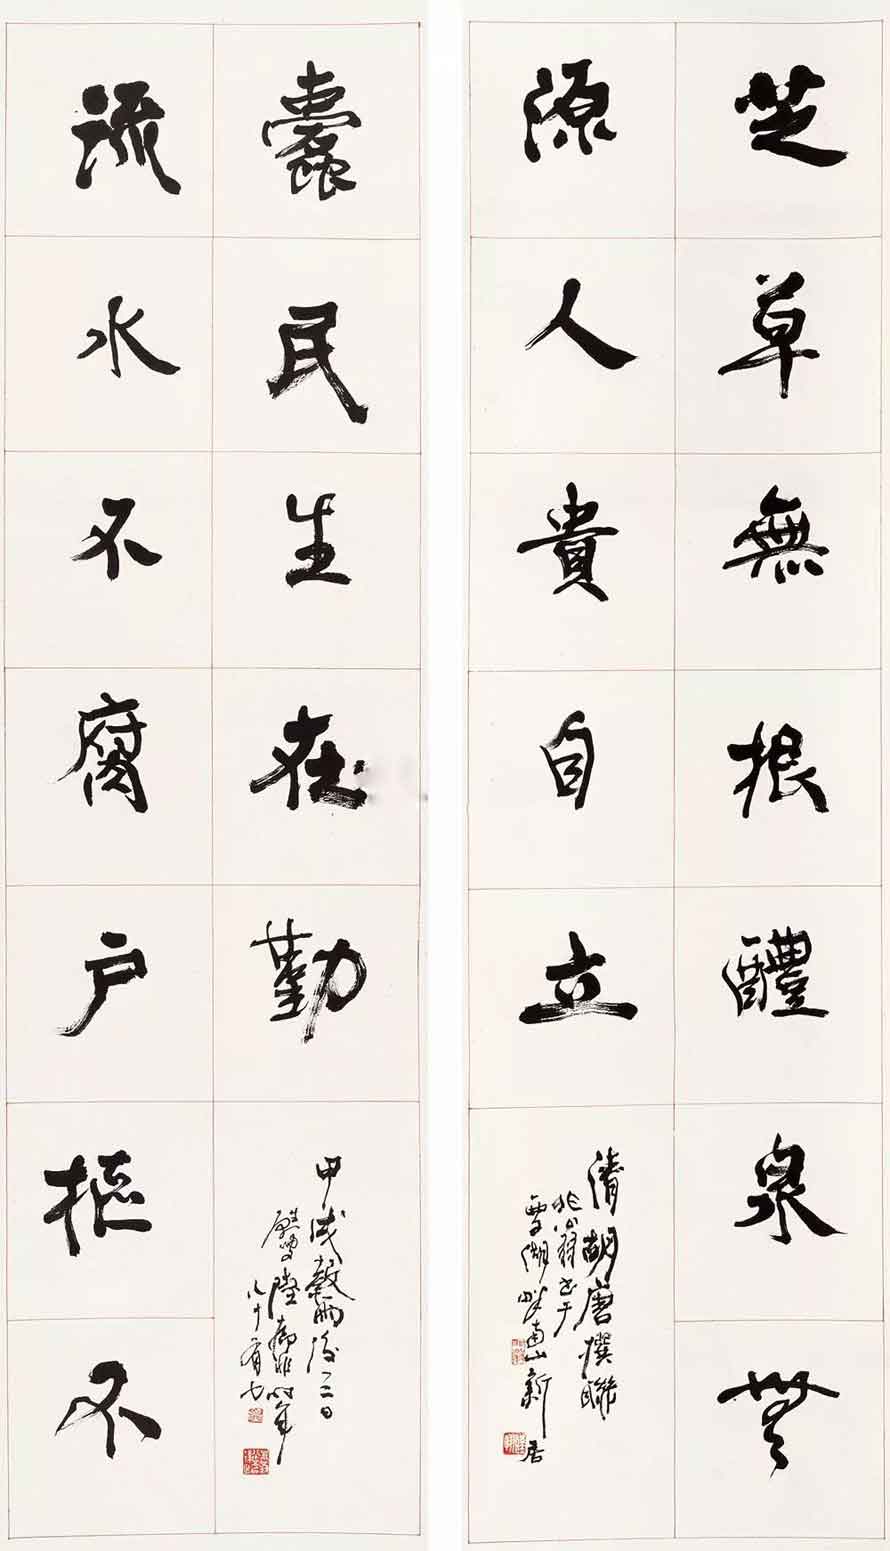 芝草無根醴泉無
源人貴自立
清胡唐撰聯
非翁書于
湖畔南山新居
流水不腐户樞不
蠹民生在勤
甲戌穀雨後日
陸非時年
八十有七